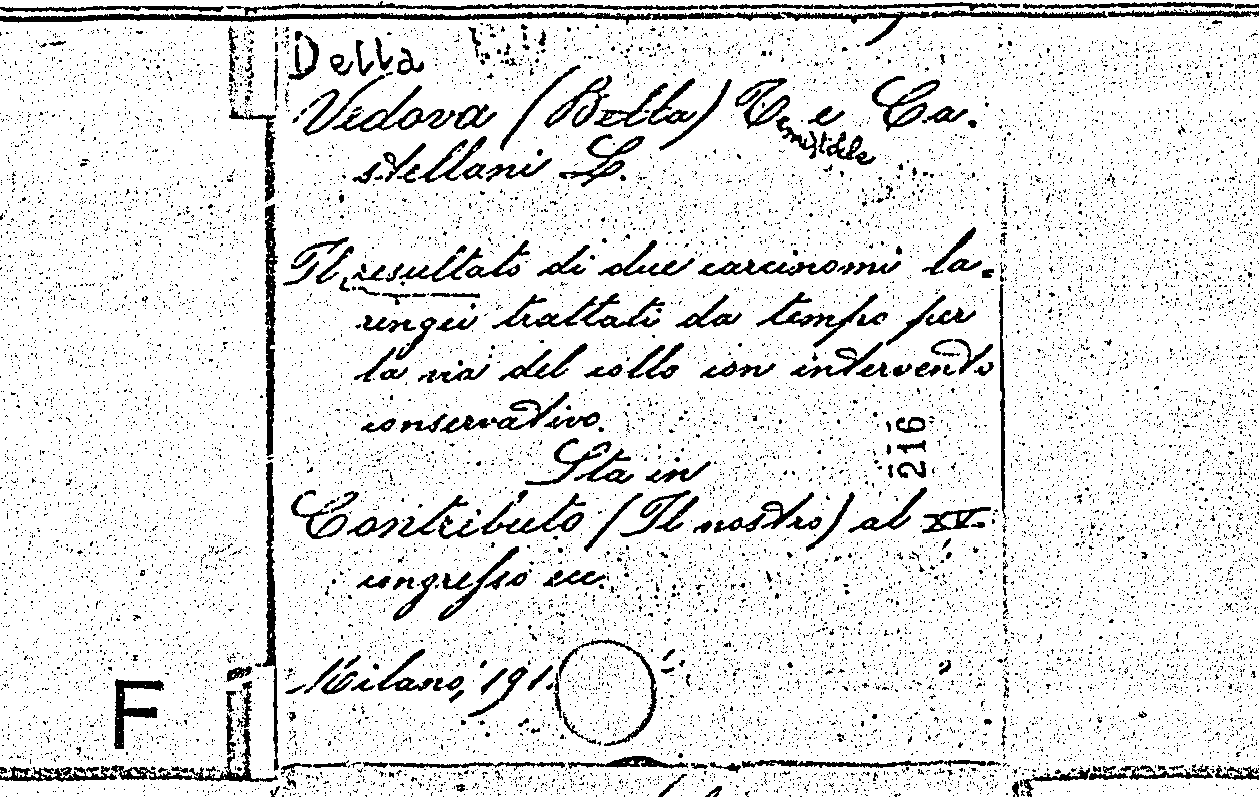 Della
Vedova (Della) T. e Ca-
emistocle
stellani L.
Il resultato di due carcinomi la-
ringei trattati da tempo per
la via del collo con intervento
conservativo.
216
Sta in
Contributo (Il nostro) al XV.
congresso ecc.
Milano, 191
F